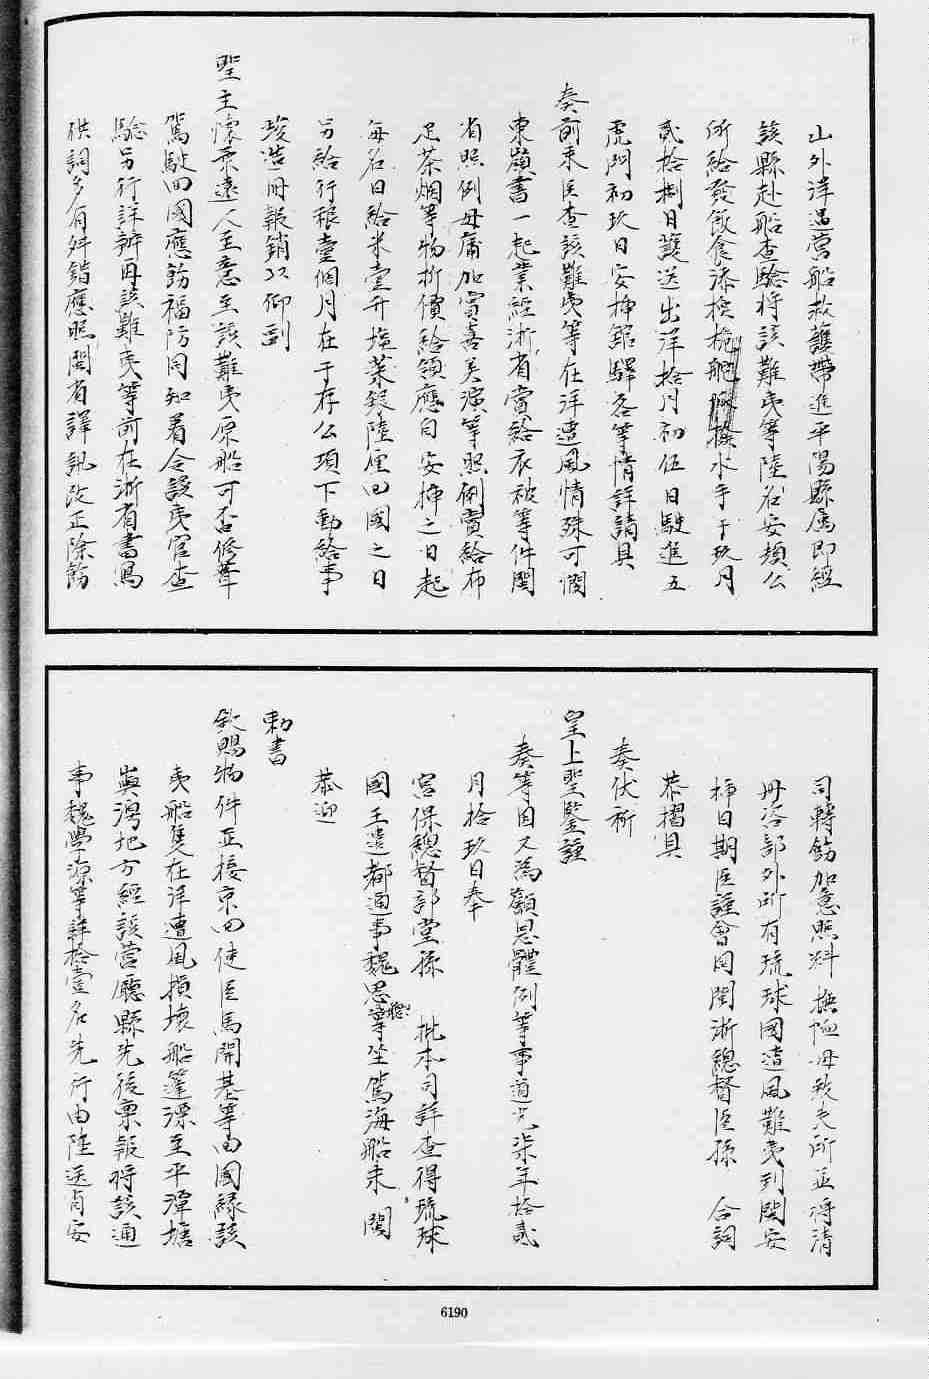 山外洋遇營船救護帶進平陽縣屬即經
該縣赴船查驗將該難夷等陸名安頓公
所給發飯食添換桅舵水手于玖月
貳拾捌日護送出洋拾月初伍日駛進五
虎門初玖日安揷舘驛各等情詳請具
奏前來臣查該難夷等在洋遭風情殊可憫
東嶺書一起業經浙省當給衣被等件閩
省照例毋庸加賞喜美演等照例賞給布
足茶烟等物折價給領應自安揷之日起
每名日給米壹升塩菜銀陸厘回國之日
另給行粮壹個月在于存公項下動給事
竣造冊報銷以仰副
聖主懷柔遠人至意至該難夷原船可否修葺
駕駛回國應飭福防同知着令該夷官查
驗另行詳辨再該難民等前在浙省書寫
供詞多有舛錯應照閩省譯訊改正除飭
司轉飭加意照料撫恤毋致失所並將清
冊咨部外所有琉球國遭風難夷到閩安
揷日期臣謹會同閩浙總督臣孫 合詞
恭摺具
奏伏祈
皇上聖鑒謹
奏等因又為顧恩體例等事道光柒年拾貳
月拾玖日奉
宮保總督部堂孫 批本司詳查得琉球
國王遣都通事魏思等坐駕海船來 閩
恭迎
勅書
欽賜物件並接京回使臣馬開基等回國緣該
夷船隻在洋遭風損壞船篷漂至平潭塘
與灣地方經該營廳縣先後稟報將該通
事魏學源等詳拾壹名先行由陸送省安
6190